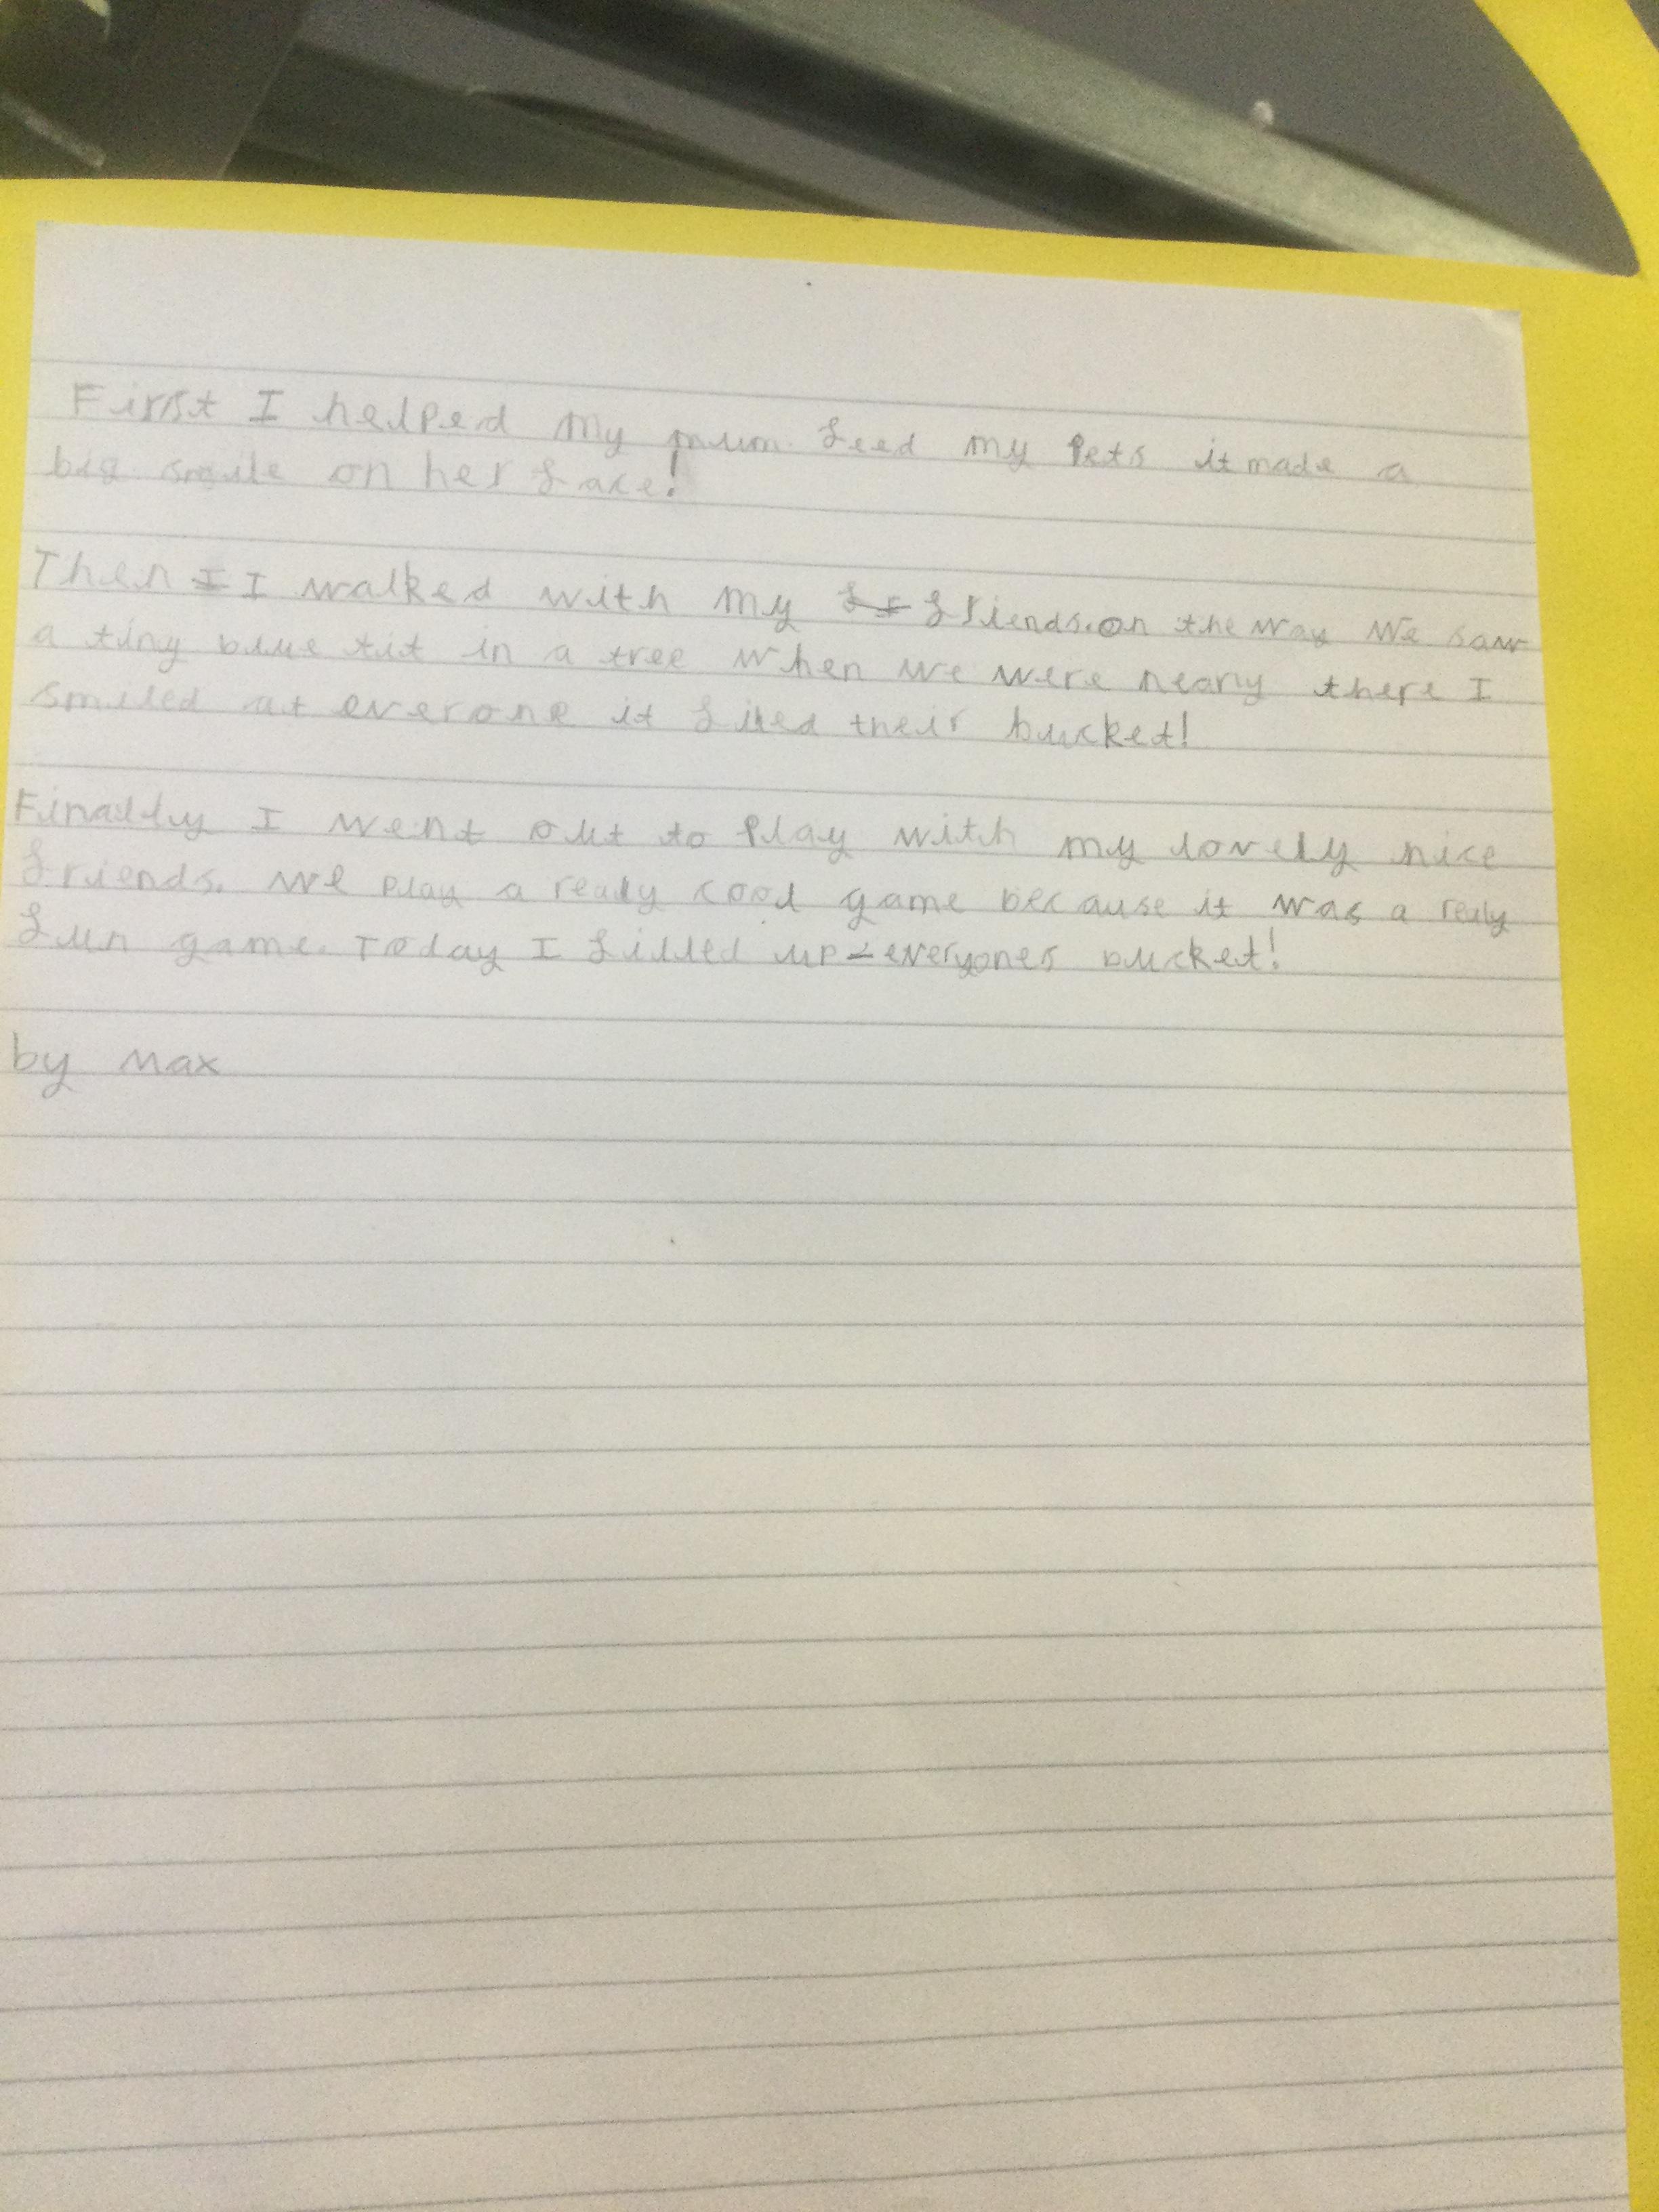 First I helped My mum feed my Pets it made a
big smile on her face!
Then I I walked with My fr friends. on the way We saw
a tiny blue tit in a tree When we were nearly there I
smiled at everone it filled their bucket!
Finally I went out to Play with my lovely nice
friends. We play a really cool game because it was a really
fun game. Today I filled up everyones bucket!
by Max